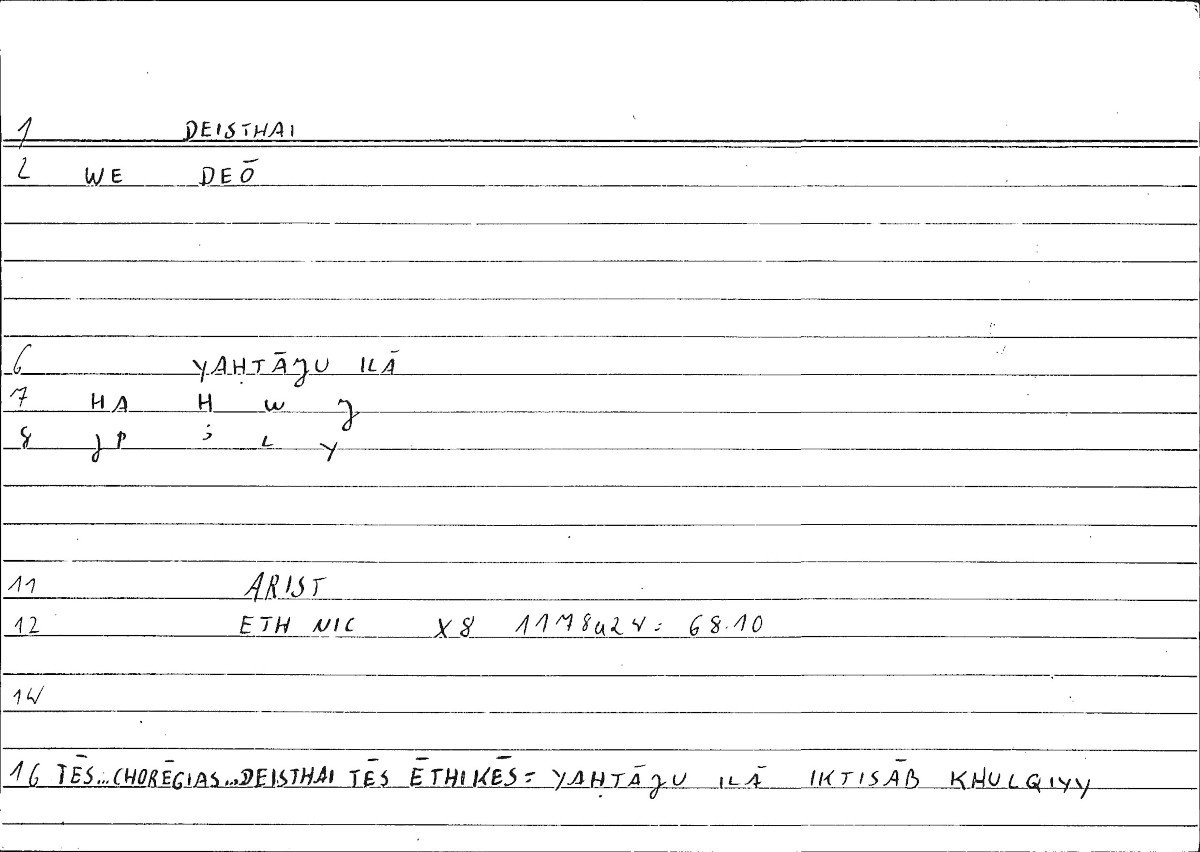 1 DEISTHAI
2 WE DEŌ
6 YAḤTĀJU ILĀ
7 HA H W J
8 JP ; L Y
11 ARIST
12 ETH NIC X8 1178a24: 68.10
14
16 TĒS...CHORĒGIAS...DEISTHAI TĒS ĒTHIKĒS= YAḤTĀJU ILĀ IKTISĀB KHULQIYY